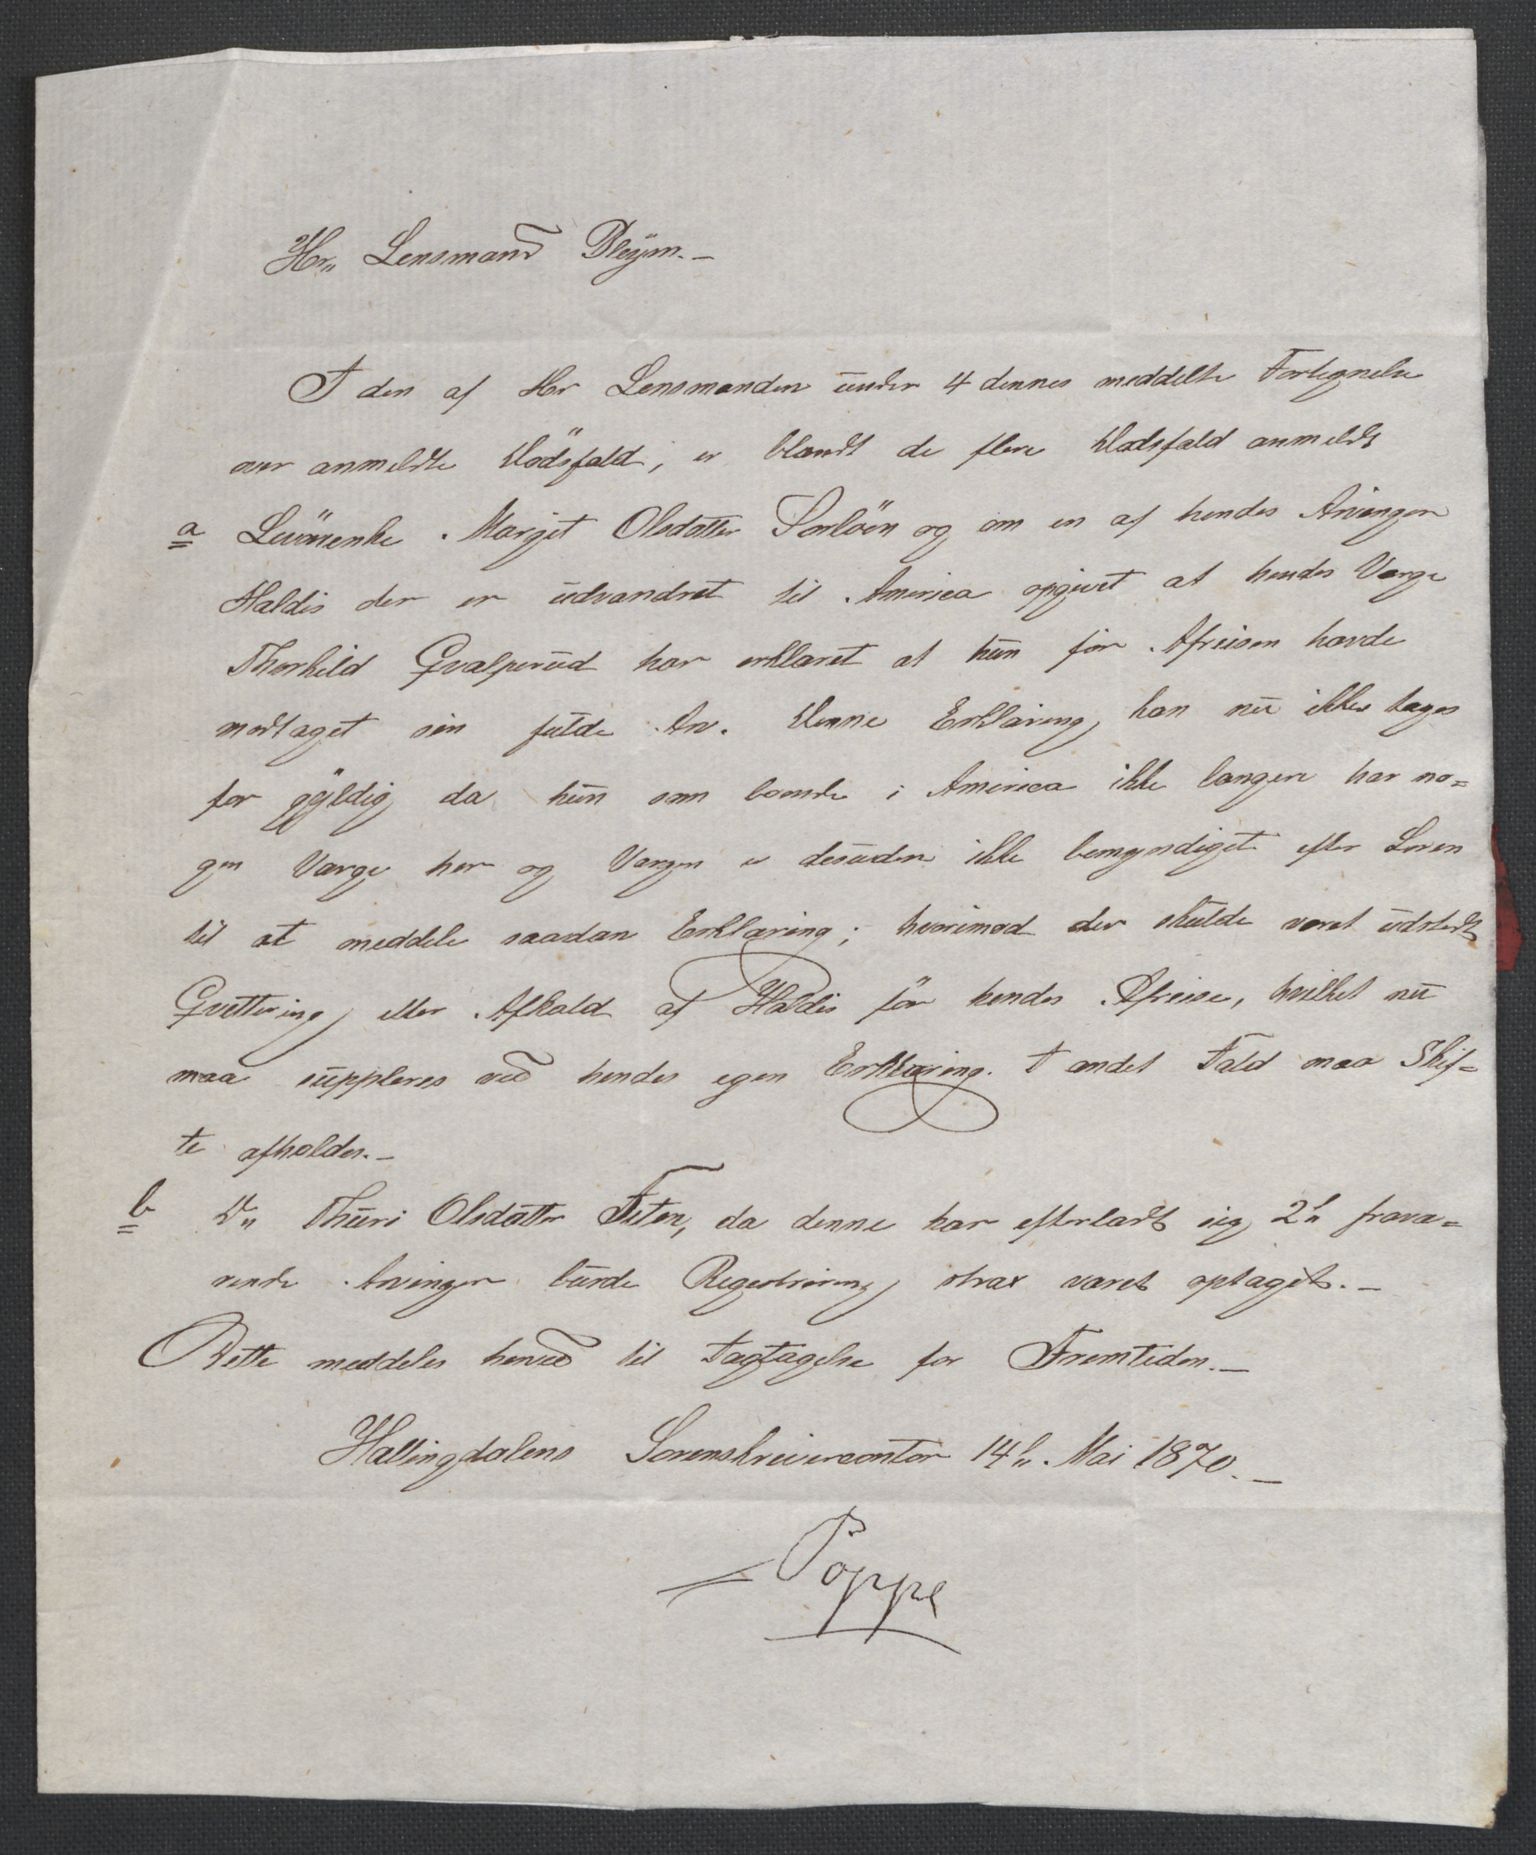 Hr. Lensmand Pleym.-
I den af Hr Lensmanden under 4 dennes meddelte Fortegnelse
over anmeldte Dødsfald, er blandt de flere Dødsfald anmeldt
a Leiv. enke Margit Olsdatter Sørløien og om en af hendes Arvinger
Haldis der er udvandret til America opgivet at hendes Værge
Thorkild Qvalperud har erklæret at hun før Afreisen havde
modtaget sin fulde Arv. Denne Erklæring kan nu ikke tages
for gyldig da hun som boende i America ikke længere har no=
gen Værge her og Værgen er desuden ikke bemyndiget efter Loven
til at meddele saadan Erklæring; hvorimod der skulde været udstedt
Qvittering eller Afkald af Haldis før hendes Afreise, hvilket nu
maa suppleres ved hendes egen Erklæring. I andet Fald maa Skif=
te afholdes.-
b Do Thuri Olsdatter Feten, da denne har efterladt sig 2de fravæ=
rende Arvinger burde Registrering strax været optaget.-
Dette meddeles herved til Iagttagelse for Fremtiden.-
Hallingdalens Sorenskrivercontor 14de Mai 1870.-
Poppe